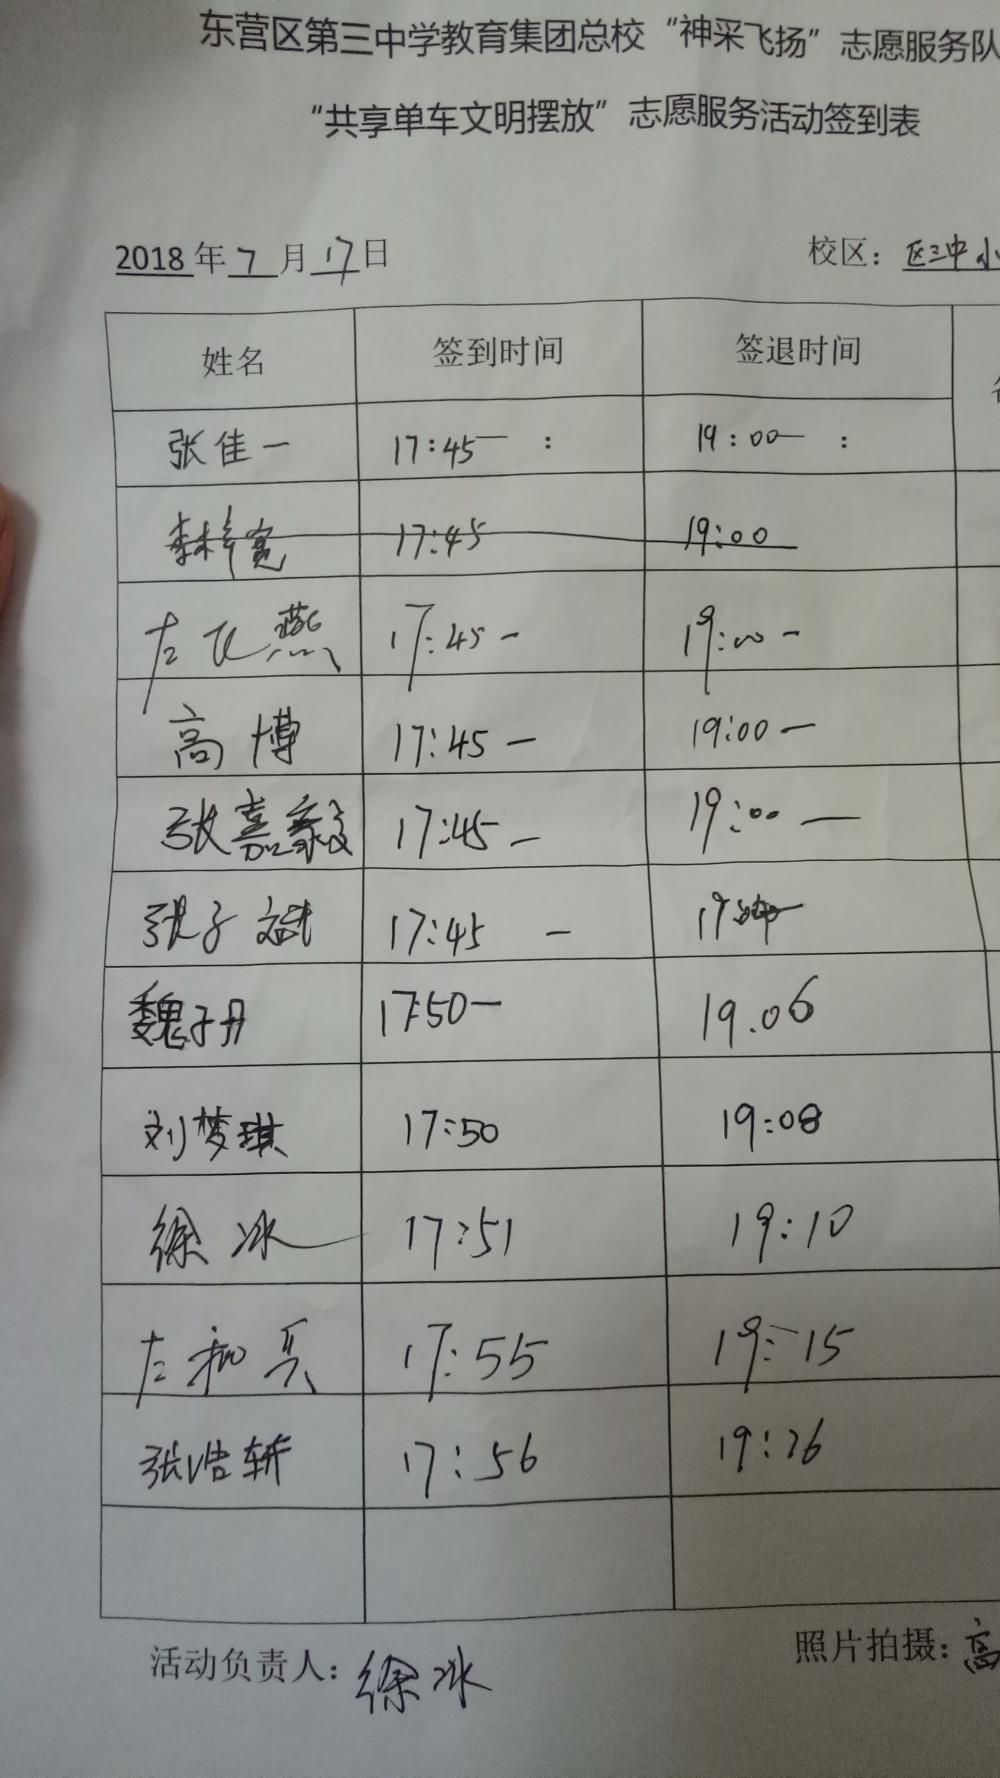 东营区第三中学教育集团总校“神采飞扬”志愿服务队
“共享单车文明摆放”志愿服务活动签到表
2018年7月17日 校区：区三中小
姓名 签到时间 签退时间
张佳一 17:45— : 19:00— :
李梓宽 17:45 19:00
左飞燕 17:45— 19:00—
高博 17:45— 19:00—
张嘉毅 17:45— 19:00—
张子斌 17:45 —
魏子丹 17:50— 19.06
刘梦琪 17:50 19:08
徐冰 17:51 19:10
左和兵 17:55 19:15
张浩轩 17:56 19:26
活动负责人：徐冰 照片拍摄：高